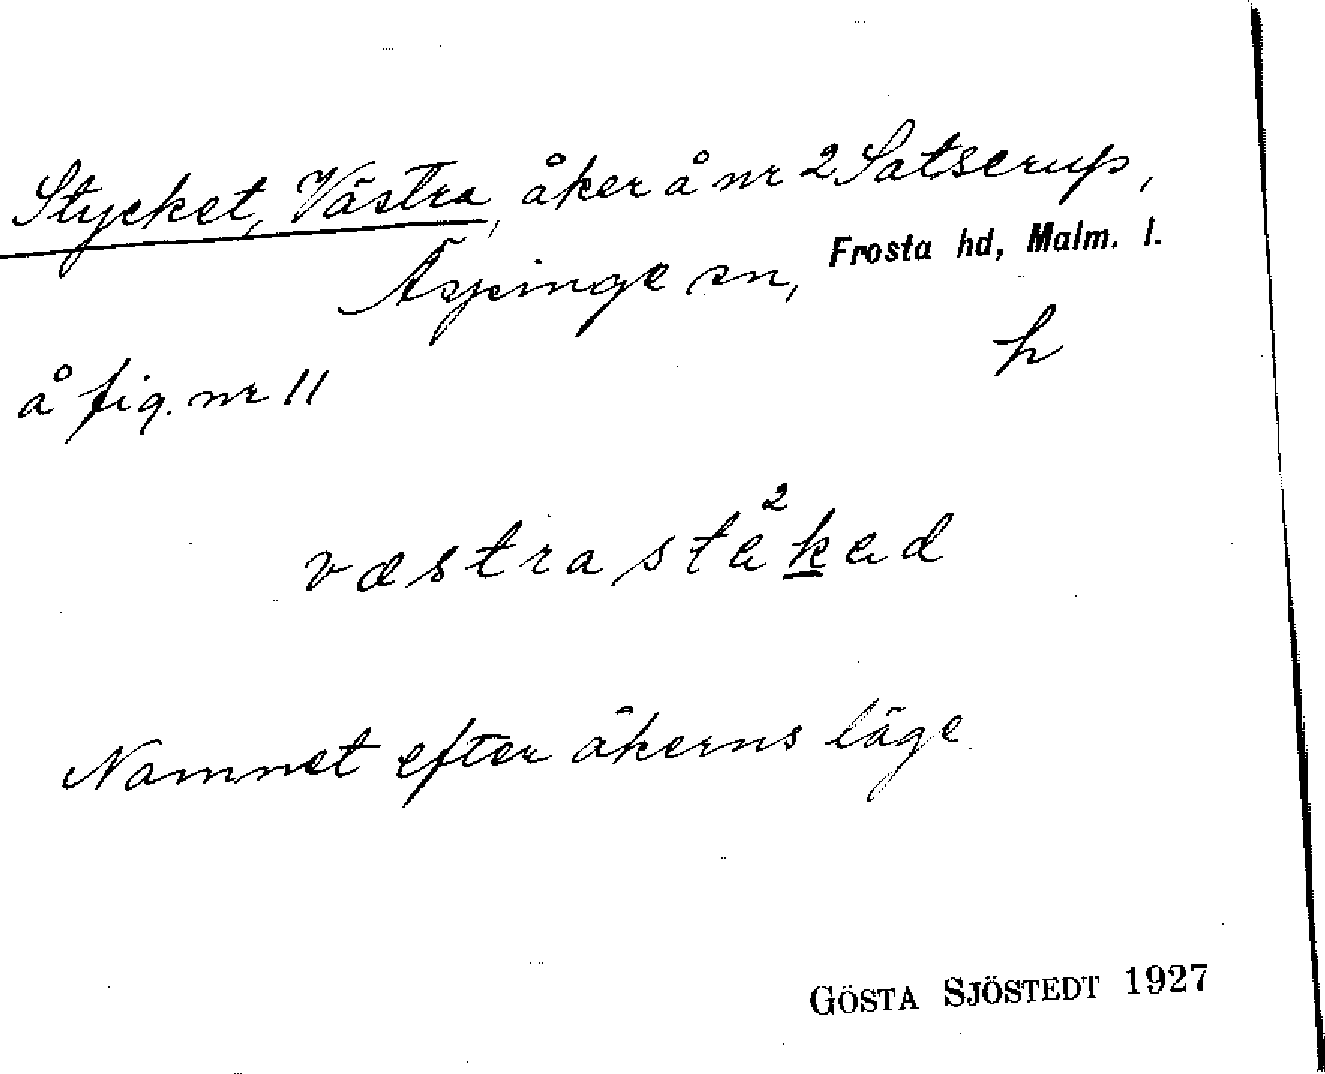 Stycket, Västra, åker å nr 2 Satserup,
Äspinge sn, Frosta hd, Malm. l.
h
å fig. nr 11
væstra stä²kad
Namnet efter åkerns läge
GÖSTA SJÖSTEDT 1927